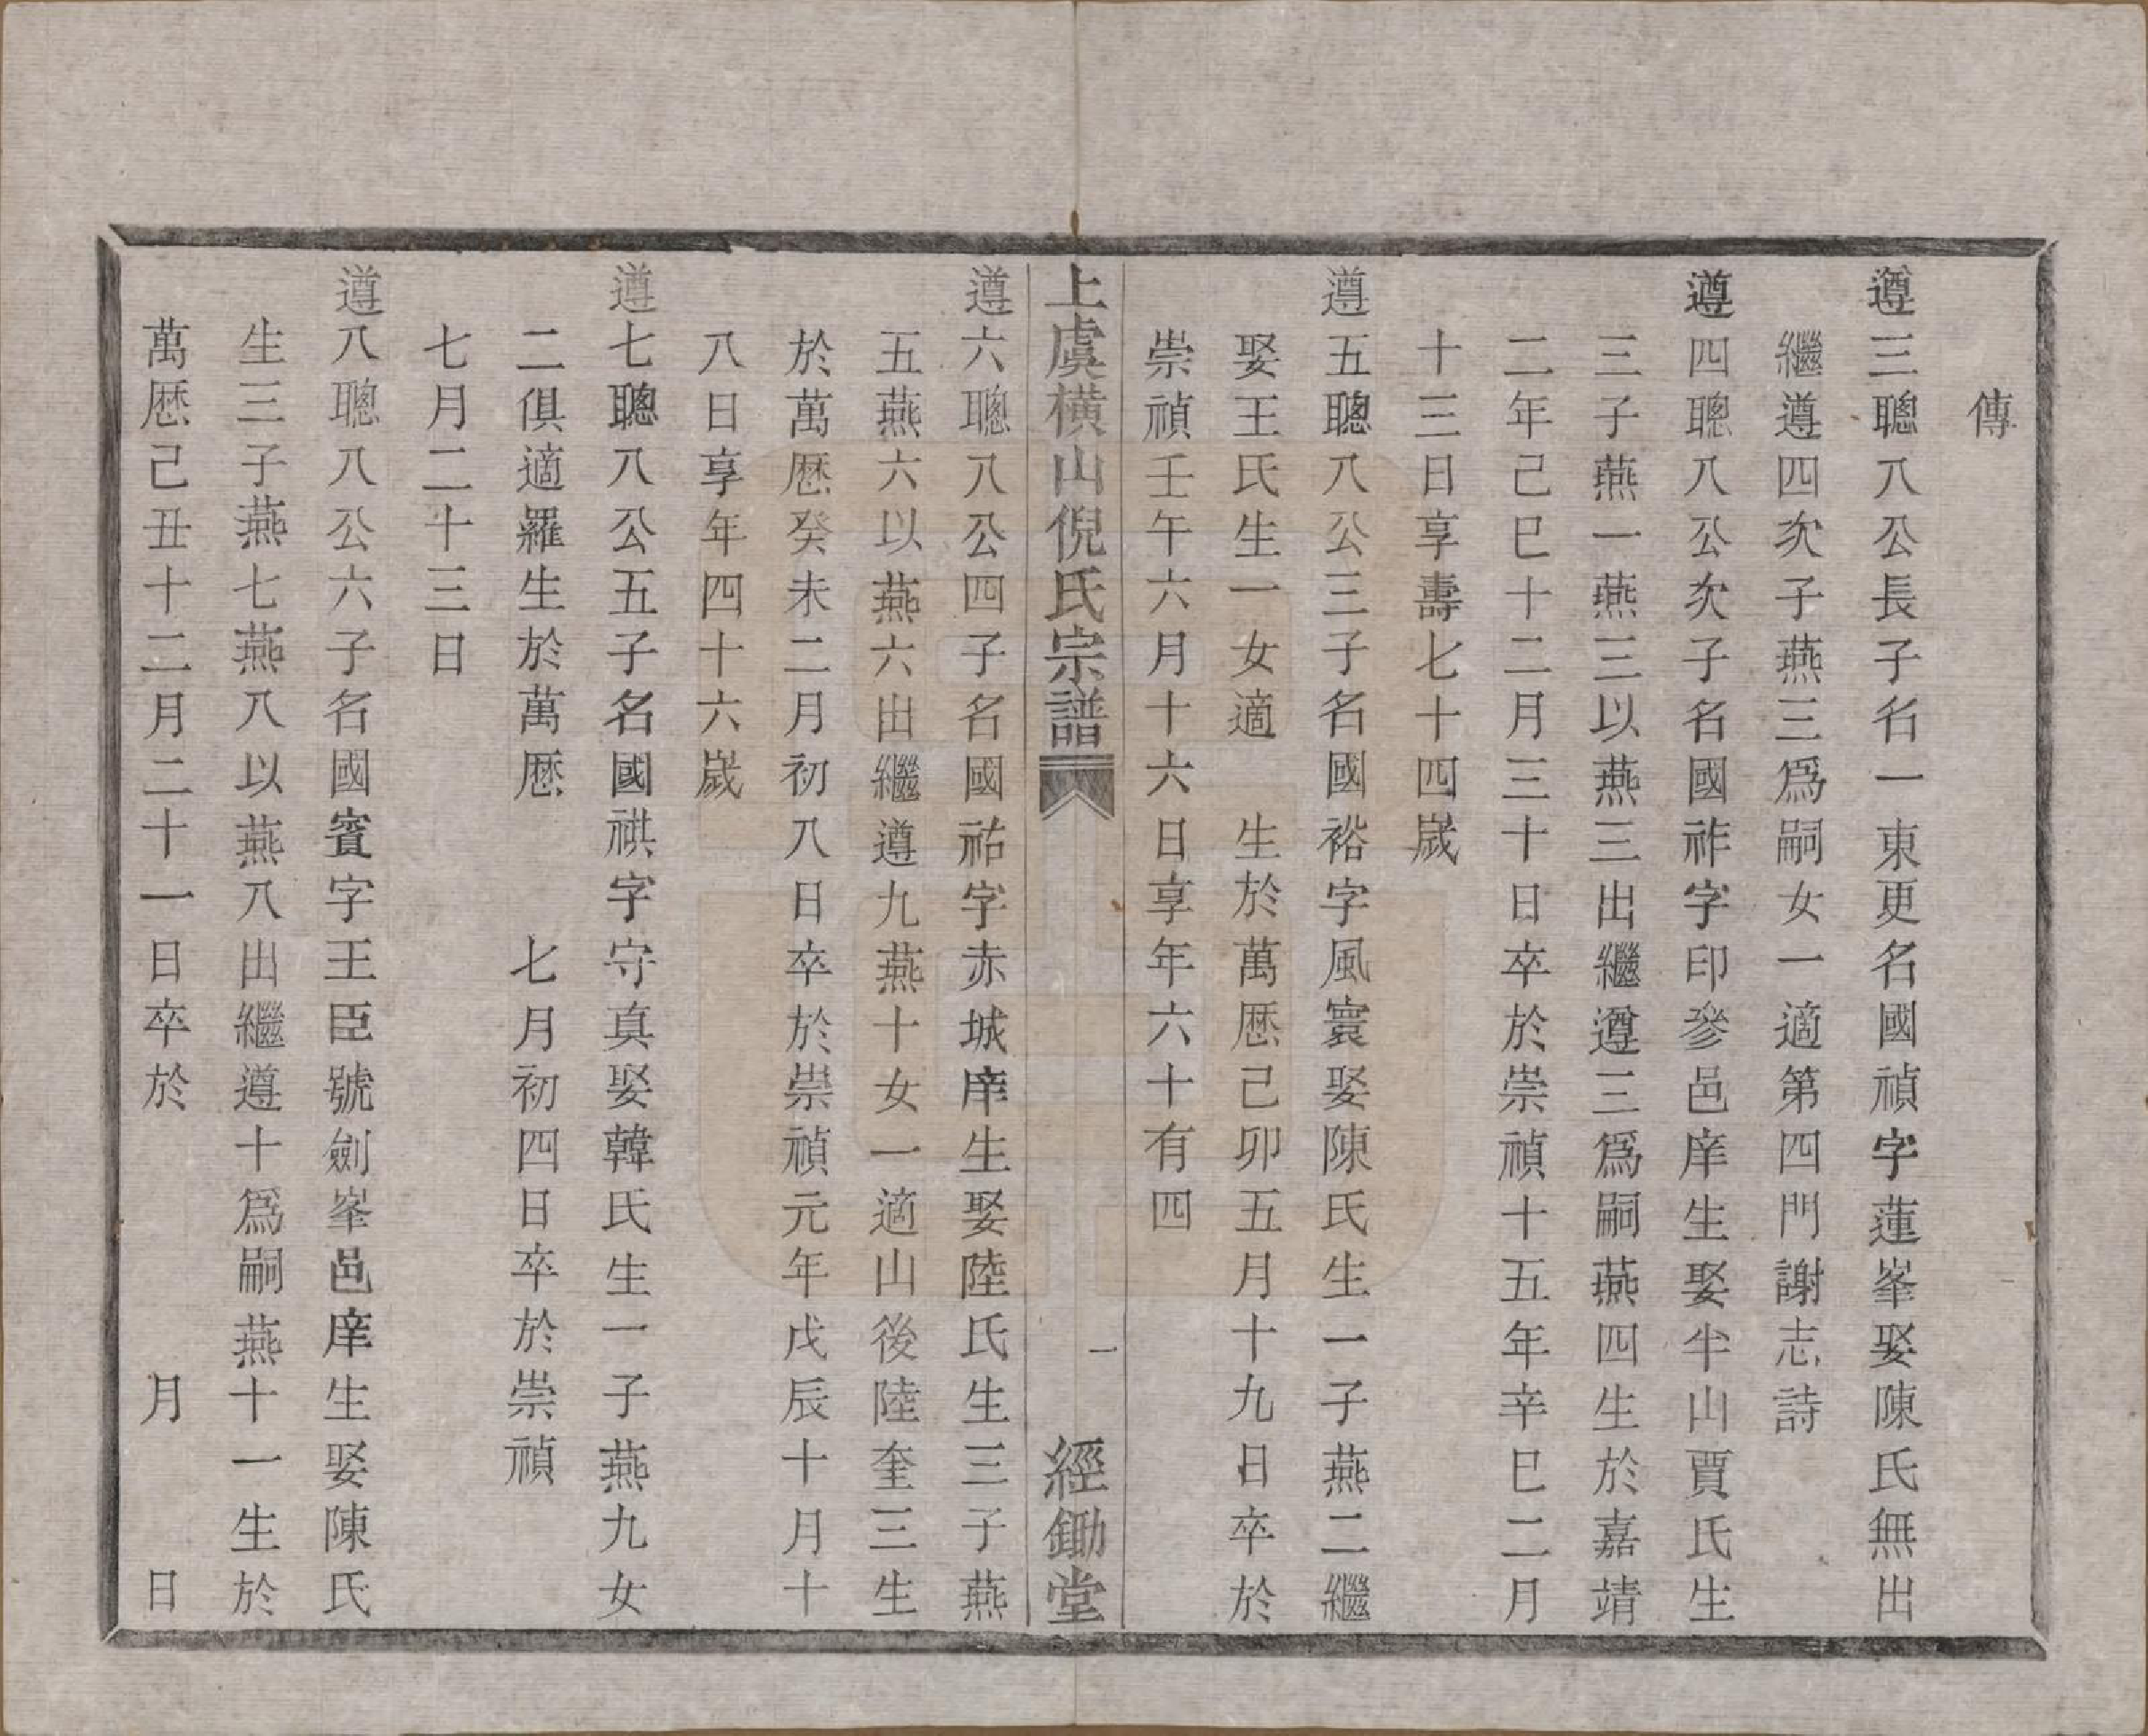 傳
遵三聰八公長子名一東更名國禎字蓮峯娶陳氏無出
繼遵四次子燕三爲嗣女一適第四門謝志詩
遵四聰八公次子名國祚字印參邑庠生娶半山賈氏生
三子燕一燕三以燕三出繼遵三爲嗣燕四生於嘉靖
二年己巳十二月三十日卒於崇禎十五年辛巳二月
十三日享壽七十四歲
遵五聰八公三子名國裕字風寰娶陳氏生一子燕二繼
娶王氏生一女適　生於萬厯己卯五月十九日卒於
崇禎壬午六月十六日享年六十有四
上虞橫山倪氏宗譜　一　經鋤堂
遵六聰八公四子名國祐字赤城庠生娶陸氏生三子燕
五燕六以燕六出繼遵九燕十女一適山後陸奎三生
於萬厯癸未二月初八日卒於崇禎元年戊辰十月十
八日享年四十六歲
遵七聰八公五子名國祺字守真娶韓氏生一子燕九女
二俱適羅生於萬厯　七月初四日卒於崇禎
七月二十三日
遵八聰八公六子名國賓字王臣號劍峯邑庠生娶陳氏
生三子燕七燕八以燕八出繼遵十爲嗣燕十一生於
萬厯己丑十二月二十一日卒於　月　日